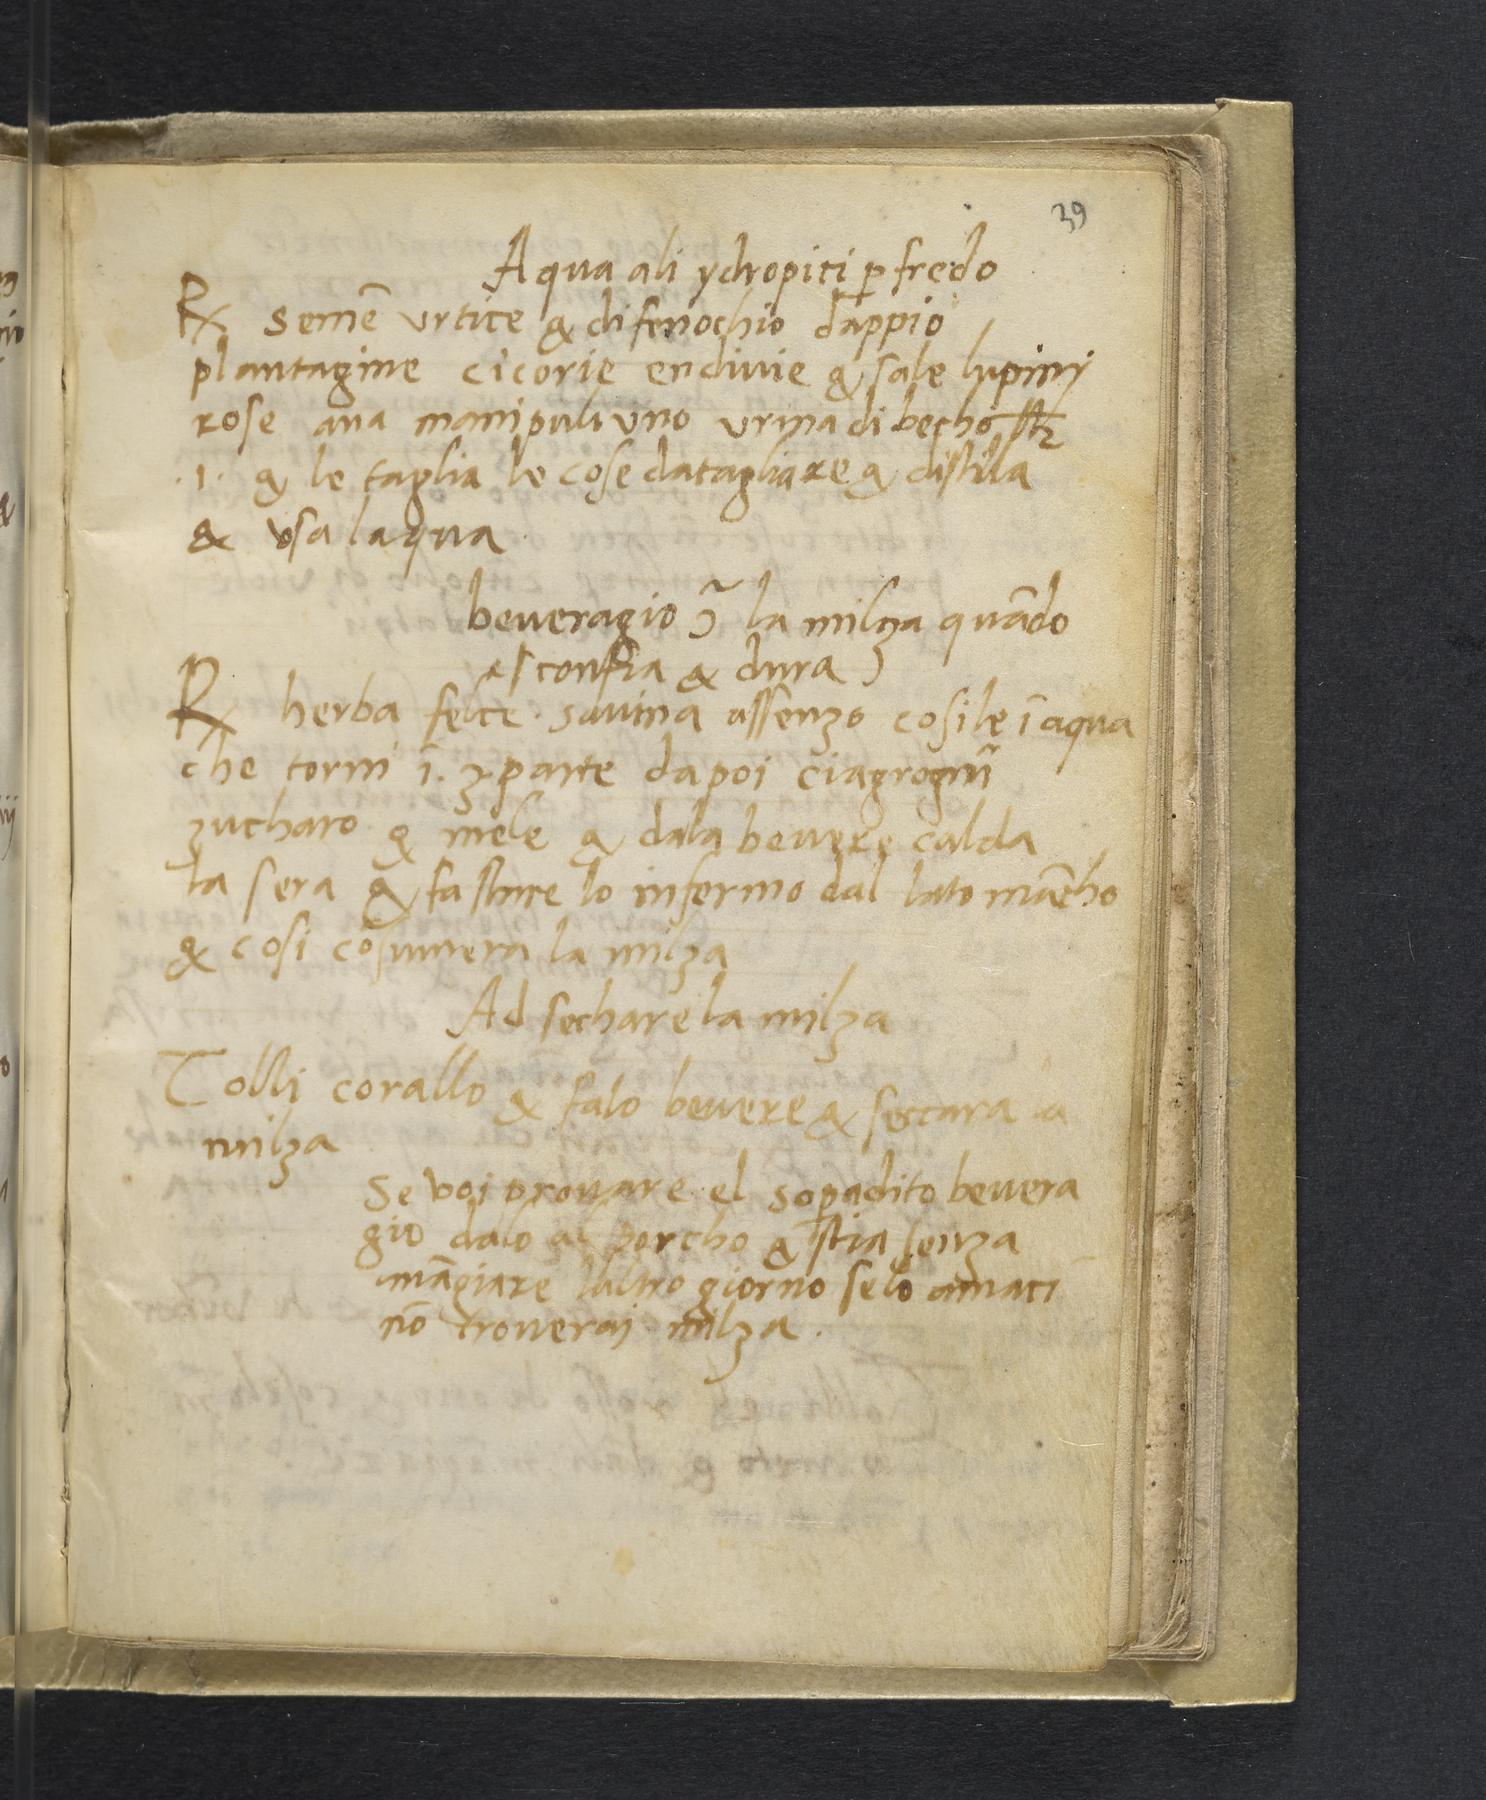 39
Aqua ali ydropici p̱ fredo
℞ semē vrtice & di fenochio dappio
plantagine cicorie endiuie & sale lupinj
rose ana manipuli vno vrina di becho
.1. & le taglia le cose da tagliare & distilla
& vsa laqua
beueragio ꝯ̃ la milza quādo
e confia & dura
℞ herba felce . sauina assenzo cosile ī aqua
che torni ī . 3. parte da poi ciagrogni
zucharo & mele & dala beuere calda
la sera & fa stare lo infermo dal lato mācho
& cosi cōsumera la milza
Ad sechare la milza
Tolli corallo & falo beuere & seccara la
milza
Se voi prouare el sop̱adito beuera
gio dalo al porcho & stia senza
māgiare laltro giorno se lo amaci
nō trouerai milza .